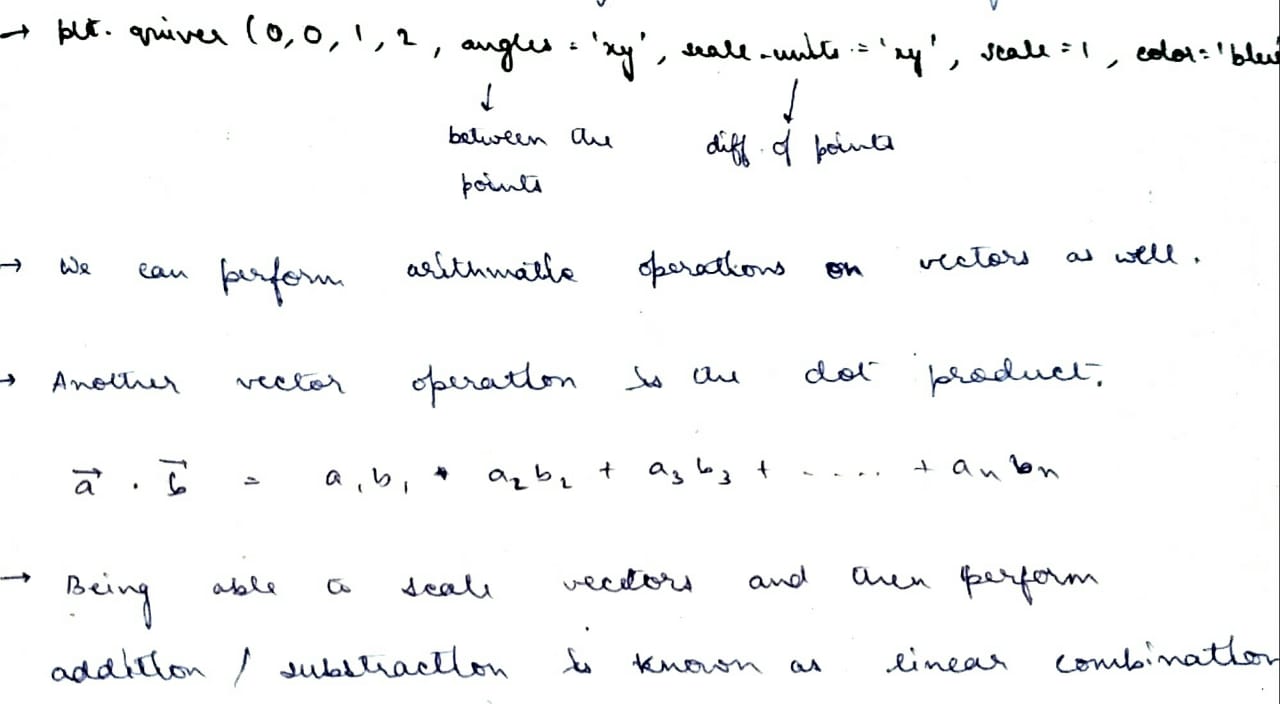 → plt. quiver (0, 0, 1, 2, angles = 'xy', scale-units = 'xy', scale = 1, color = 'blue'
↓ ↓
between the diff. of points
points
→ We can perform arithmatic operations on vectors as well.
→ Another vector operation is the dot product.
a⃗ . b⃗ = a₁b₁ + a₂b₂ + a₃b₃ + ..... + aₙbₙ
→ Being able to scale vectors and then perform
addition / substraction is known as linear combination